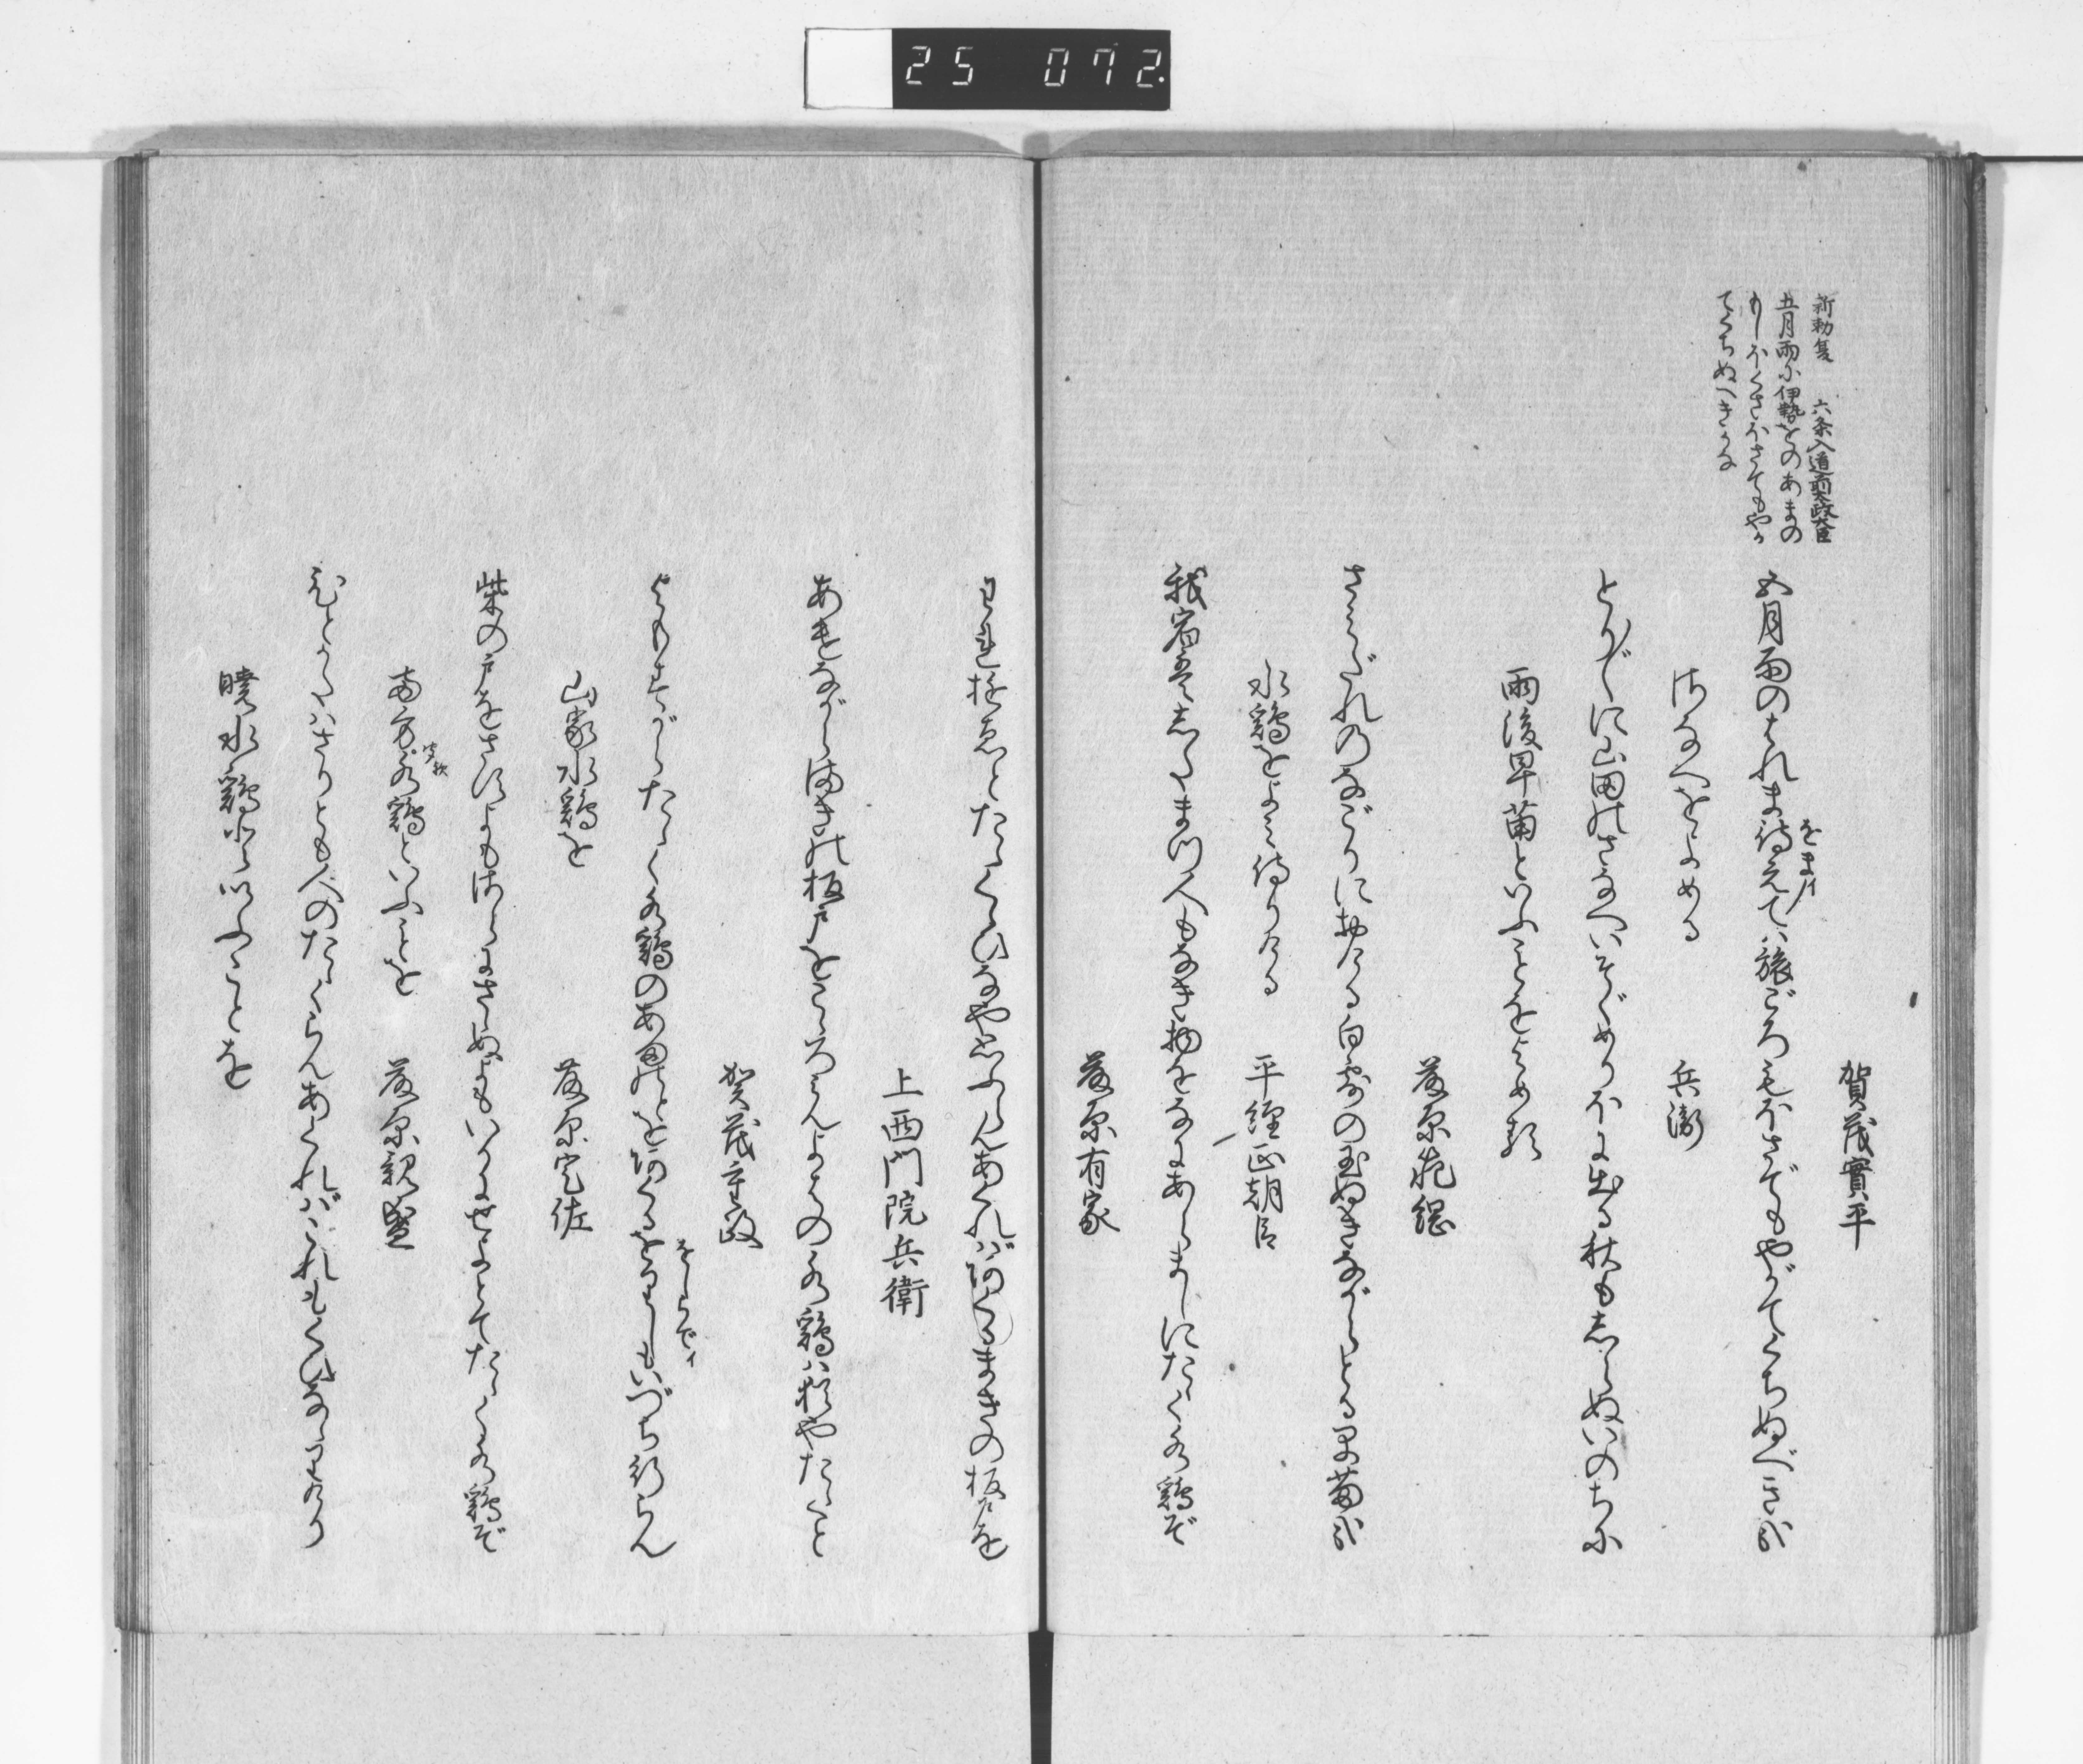 25 072.
新勅夏 六条入道前太政大臣
五月雨に伊勢をのあまの
もしほくさほさてもやか
てくちぬへきかな
賀茂實平
五月雨のはれま待えて旅ごろもほさでもやがてくちぬべきかな
をまイ
さなへをよめる 兵衛
とり〴〵に山田のさなへいそぐめりほに出る秋もしらぬいのちに
雨後早苗といふことをよめる
藤原範綱
さみだれのなごりにおける白露の玉ぬきながらとる早苗かな
水鶏をよみ侍りける 平經正朝臣
我宿をまつ人もなき物をなにあらましにたゝく水鶏ぞ
藤原有家
まきの板戸を
上西門院兵衛
あけながらまきの板戸をこゝろみんよはの水鶏は猶やたゝくと
賀茂重政
よもすがらたゝく水鶏のあまのとをあくるをりしもいづち行らん
をしらでイ
山家水鶏を 藤原定佐
柴の戸をさすよもさらにさらぬよもいかにせよとてたゝく水鶏ぞ
両方水鶏といふことを 藤原親盛
ひとかたはさりとも人のたゝくらんあくればこれもくひななりけり
暁水鶏といふことを